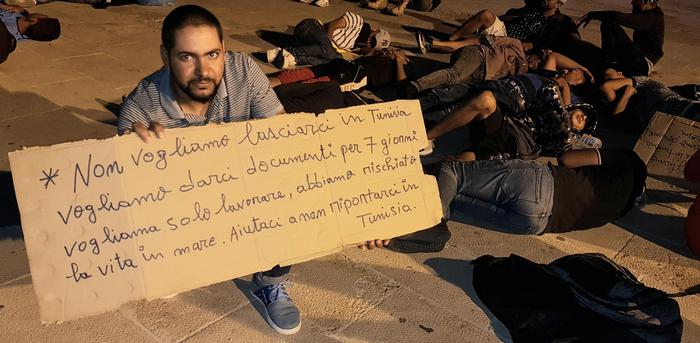 * Non vogliamo lasciarci in Tunisia
vogliamo darci documenti per 7 giorni
vogliama solo lavorare, abbiamo rischiato
la vita in mare. Aiutaci a non riportarci in
Tunisia.